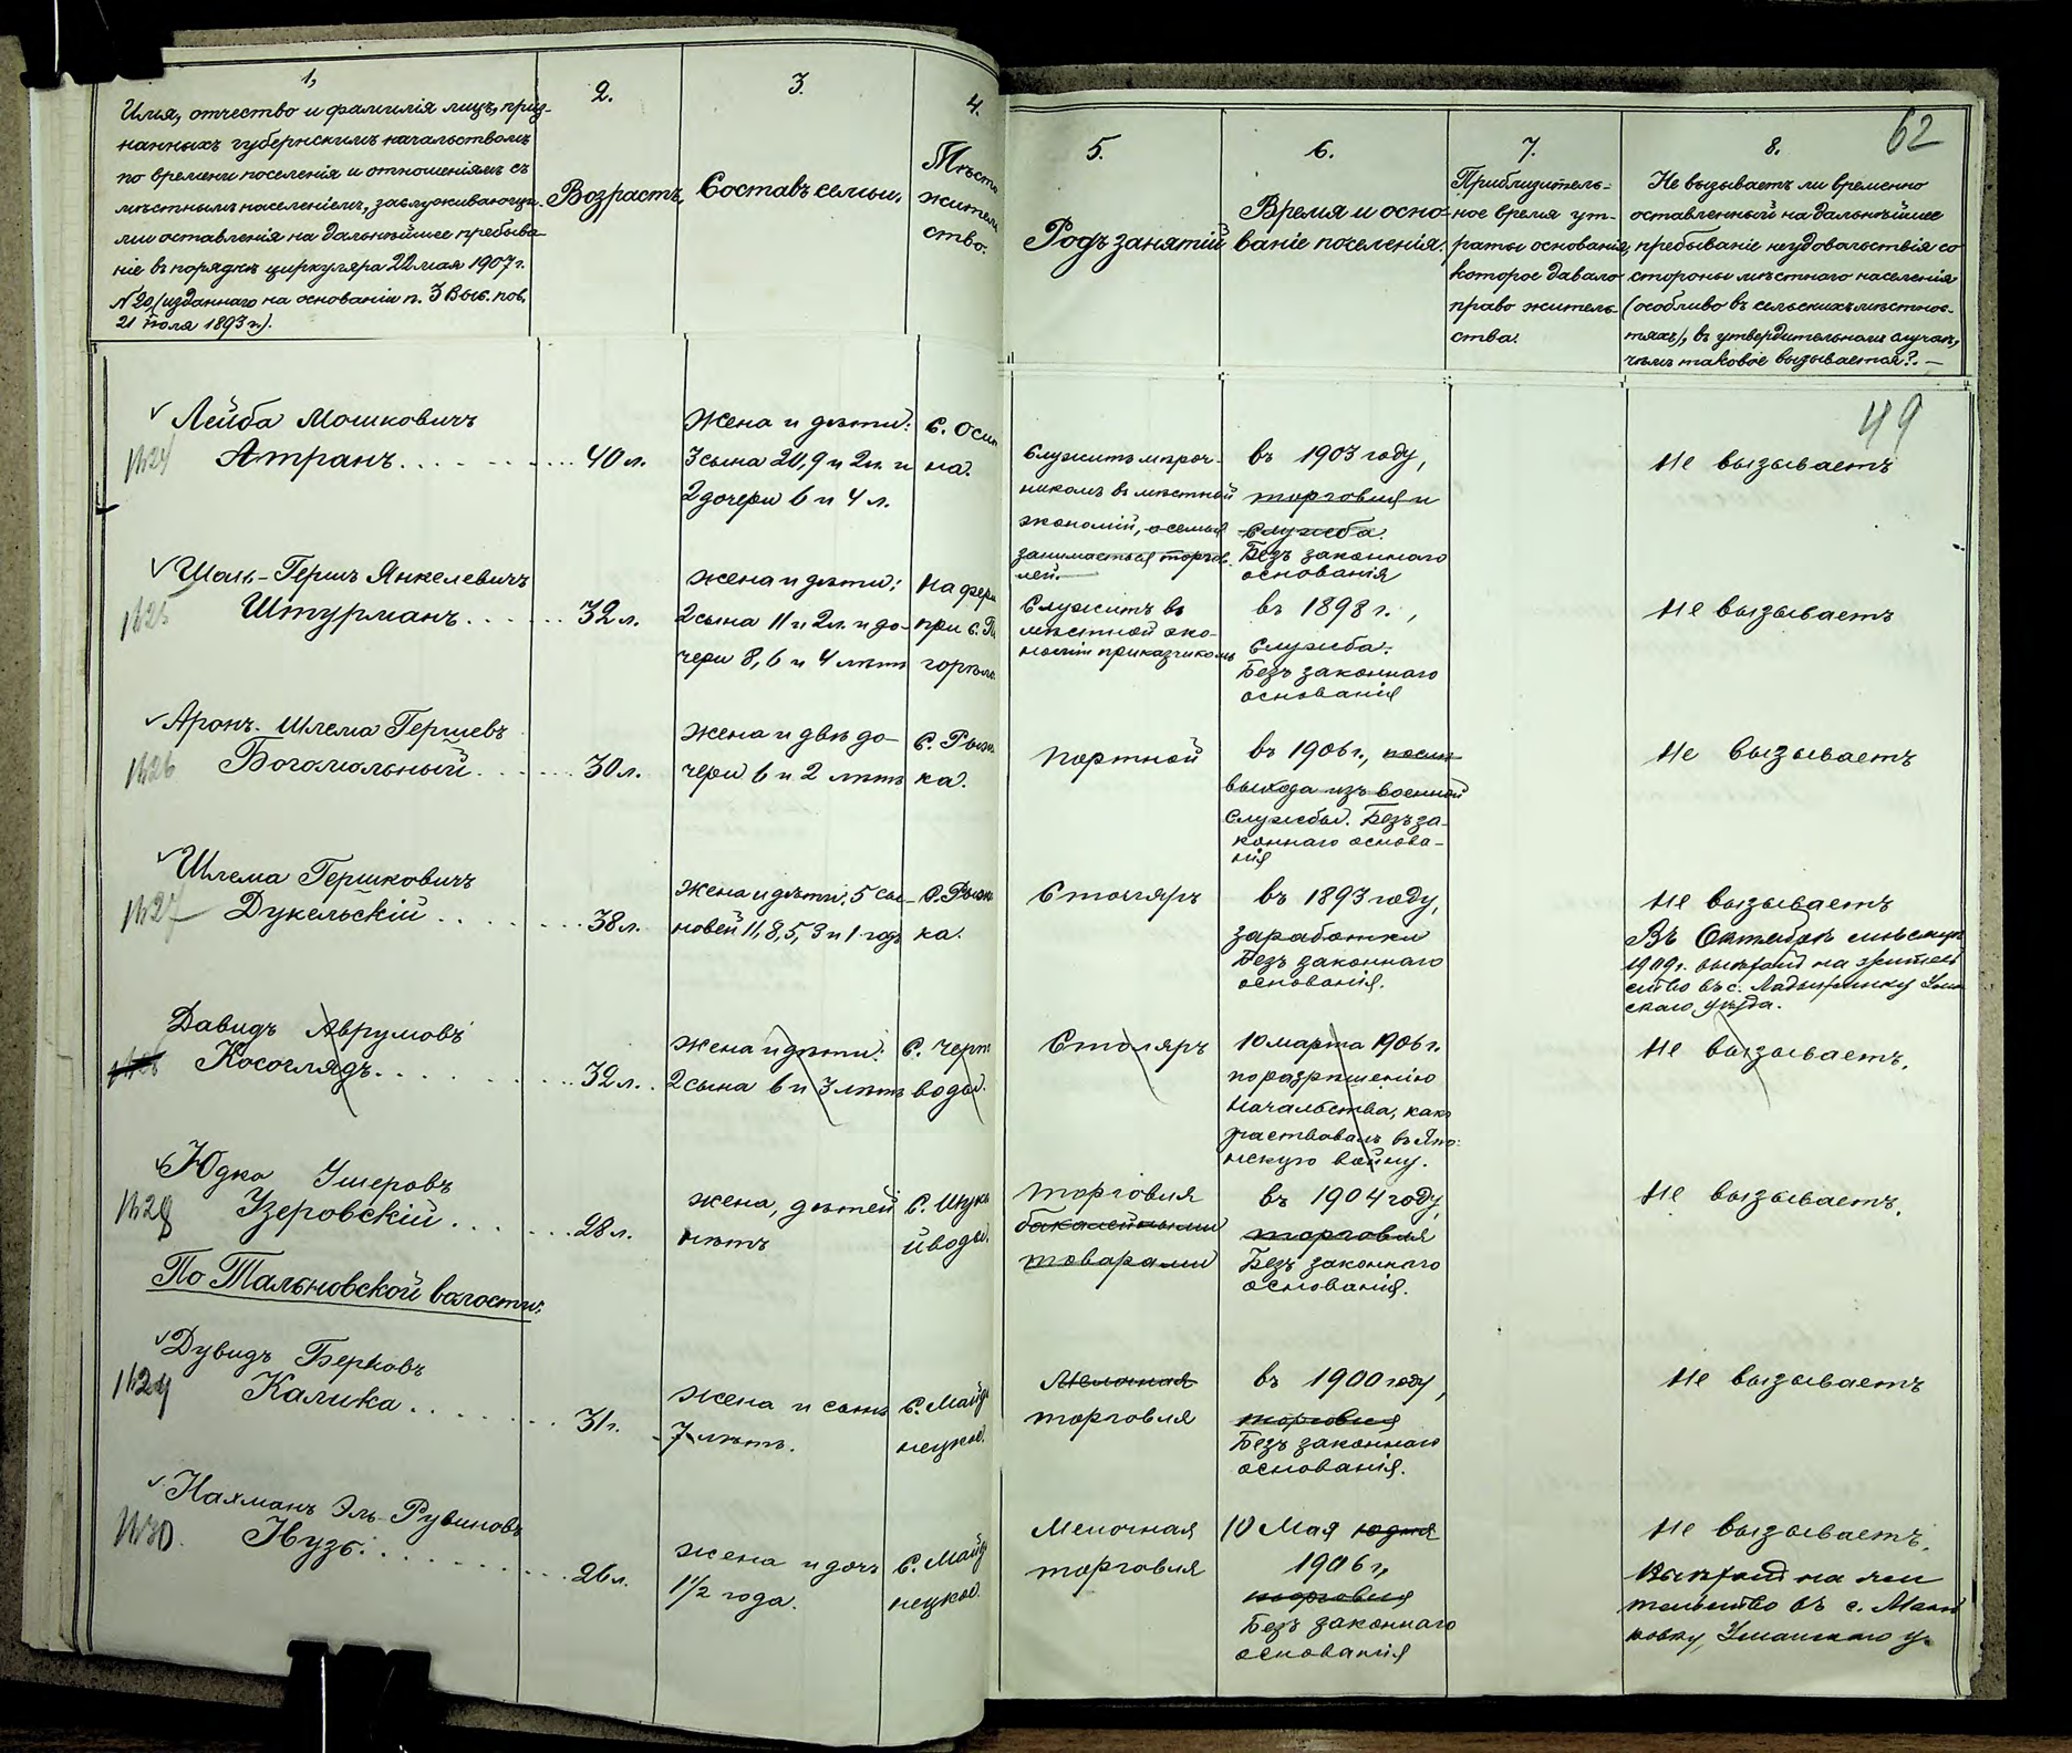 62
1,
Имя, отчество и фамилія лицъ, приз-
нанныхъ губернскимъ начальствомъ
по времени поселенія и отношеніямъ съ
мѣстнымъ населеніемъ, заслуживающи-
ми оставленія на дальнѣйшее пребыва-
ніе въ порядкѣ циркуляра 22 мая 1907 г.
№ 20 (изданнаго на основаніи п. 3 Выс. пов.
21 іюля 1893 г.).
2.
Возрастъ,
3.
Составъ семьи,
4.
Мѣсто
житель
ство.
5.
Родъ занятій
6.
Время и осно-
ваніе поселенія.
7.
Приблизитель-
ное время ут-
раты основанія,
которое давало
право житель-
ства.
8.
Не вызываетъ ли временно
оставленный на дальнѣйшее
пребываніе неудовольствія со
стороны мѣстнаго населенія
(особливо въ сельскихъ мѣстнос-
тяхъ), въ утвердительномъ случаѣ,
чѣмъ таковое вызывается?. —
49
Лейба Мошковичъ
1624 Атранъ
40 л.
Жена и дѣти:
3 сына 20, 9 и 2 л. и
2 дочери 6 и 4 л.
с. Оси
на.
Служитъ
никомъ въ мѣстной
экономіи, а семья
занимается торгов
лей.
въ 1903 году,
торговля и
служба.
Безъ законнаго
основанія
Не вызываетъ
Шая-Гершъ Янкелевичъ
1625 Штурманъ
32 л.
Жена и дѣти:
2 сына 11 и 2 л. и до-
чери 8, 6 и 4 лѣтъ
На фер
при с.
горѣло
Служитъ въ
мѣстной эко-
номіи приказчикомъ
въ 1898 г.,
служба.
Безъ законнаго
основанія
Не вызываетъ
Аронъ-Шлема Гершевъ
1626 Богомольный
30 л.
Жена и двѣ до-
чери 6 и 2 лѣтъ
с. Рыж
ка.
Портной
въ 1906 г., послѣ
выхода изъ военной
службы. Безъ за-
коннаго основа-
нія
Не вызываетъ
Шлема Гершковичъ
1627 Дукельскій
38 л.
Жена и дѣти: 5 сы-
новей 11, 8, 5, 3 и 1 годъ
с. Рыж
ка.
Столяръ
въ 1893 году,
заработки
Безъ законнаго
основанія.
Не вызываетъ
Въ Октябрѣ мѣсяцѣ
1909 г. выѣхалъ на житель
ство въ с. Ладыжинку Ума
скаго уѣзда.
Давидъ Аврумовъ
Косоглядъ
32 л.
Жена и дѣти:
2 сына 6 и 3 лѣтъ
с. Черт
воды.
Столяръ
10 марта 1906 г.
по разрѣшенію
начальства, какъ
участвовалъ въ Япо-
нскую войну.
Не вызываетъ.
Юдко Ушеровъ
1628 Узеровскій
28 л.
Жена, дѣтей
нѣтъ
с. Шук
йводы.
Торговля
бакалейными
товарами
въ 1904 году,
торговля
Безъ законнаго
основанія.
Не вызываетъ.
По Тальновской волости:
Дувидъ Берковъ
1629 Калика
31 г.
Жена и сынъ
7 лѣтъ.
с. Майд
нецкое.
Мелочная
торговля
въ 1900 году,
торговля
Безъ законнаго
основанія.
Не вызываетъ
Нахманъ Эль-Рувиновъ
1630. Нузь
26 л.
Жена и дочь
1 1/2 года.
с. Майд
нецкое.
Мелочная
торговля
10 Мая
1906 г.,
торговля
Безъ законнаго
основанія
Не вызываетъ.
Выѣхалъ на жи
тельство въ с. Мань
ковку, Уманскаго у.